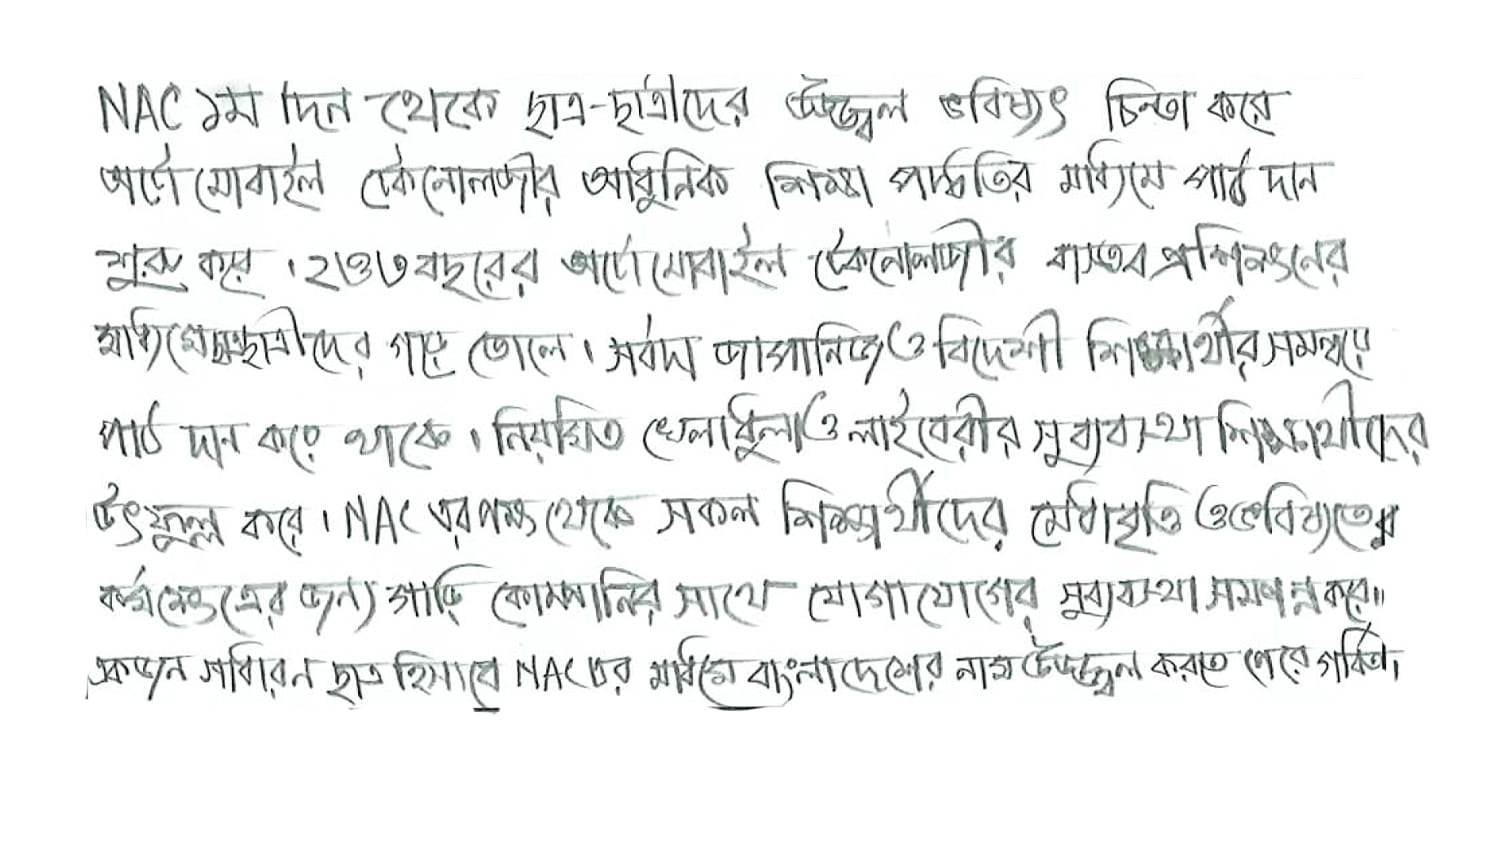 NAC ১ম দিন থেকে ছাত্র-ছাত্রীদের উজ্জ্বল ভবিষ্যৎ চিন্তা করে
অটোমোবাইল টেকনোলজীর আধুনিক শিক্ষা পদ্ধতির মাধ্যমে পাঠ দান
শুরু করে। ২/৩/৩ বছরের অটোমোবাইল টেকনোলজীর বাস্তব প্রশিক্ষনের
মাধ্যমে ছাত্রছাত্রীদের গড়ে তোলে। সর্বদা জাপানিজ ও বিদেশী শিক্ষার্থীর সমন্বয়ে
পাঠ দান করে থাকে। নিয়মিত খেলাধুলা ও লাইবেরীর সুব্যবস্থা শিক্ষার্থীদের
উৎফুল্ল করে। NAC এর পক্ষ থেকে সকল শিক্ষার্থীদের মেধাবৃত্তি ও ভবিষ্যতের
কর্মক্ষেত্রের জন্য গাড়ি কোম্পানির সাথে যোগাযোগের সুব্যবস্থা সমপন্ন করে।।
একজন সাধারন ছাত্র হিসাবে NAC এর মাধ্যমে বাংলাদেশের নাম উজ্জ্বল করতে পেরে গর্বিত।